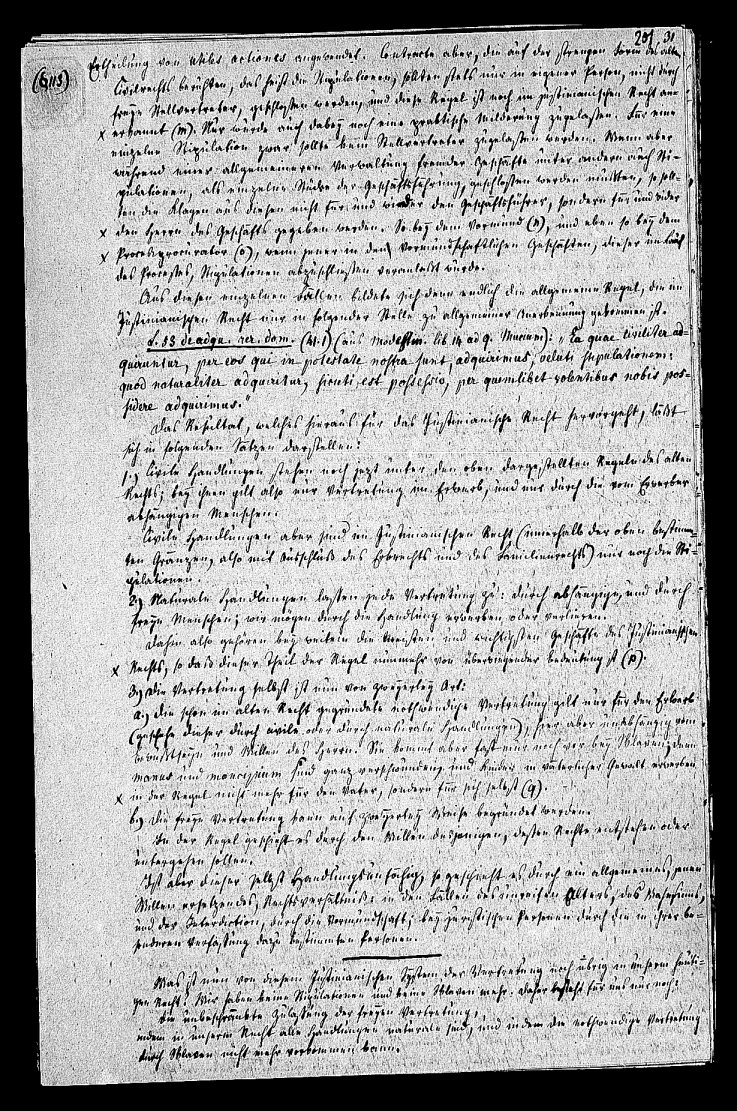 201 31
(§113)
Ertheilung von utiles actiones angewendet. Contracte aber, die auf der strengen Form des alten
Civilrechts beruhten, das heißt die Stipulationen, sollten stets nur in eigener Person, nicht durch
freye Stellvertreter, geschlossen werden, und diese Regel ist noch im Justinianischen Recht an=
x erkannt (m). Nur wurde auch dabey noch eine praktische Milderung zugelassen. Für eine
einzelne Stipulation zwar sollte kein Stellvertreter zugelassen werden. Wenn aber
während einer allgemeineren Verwaltung fremder Geschäfte unter andern auch Sti=
pulationen, als einzelne Stücke der Geschäftsführung, geschlossen werden mußten, so soll=
ten die Klagen aus diesen nicht für und wieder den Geschäftsführer, sondern für und wider
x den Herrn des Geschäfts gegeben werden. So bey dem Vormund (n), und eben so bey dem
x Procesprocurator (o), wenn jener in den vormundschaftlichen Geschäften, dieser im Lauf
des Processes, Stipulationen abzuschließen veranlaßt wurde.
Aus diesen einzelnen Fällen bildete sich denn endlich die allgemeine Regel, die im
Justinianischen Recht nur in folgender Stelle zu allgemeiner Anerkennung gekommen ist.
L. 53 de adqu. rer. dom. (41. 1) (aus Modestin. lib 14 ad Q. Mucium): „Ea quae civiliter ad=
quiruntur, per eos qui in potestate nostra sunt, adquirimus, veluti stipulationem:
quod naturaliter adquiritur, sicuti est possessio, per quemlibet volentibus nobis pos=
sidere adquirimus."
Das Resultat, welches hieraus für das Justinianische Recht hervorgeht, läßt
sich in folgenden Sätzen darstellen:
1.) Civile Handlungen stehen noch jezt unter den oben dargestellten Regeln des alten
Rechts; bey ihnen gilt also nur Vertretung im Erwerb, und nur durch die vom Erwerber
abhängigen Menschen.
Civile Handlungen aber sind im Justinianischen Recht (innerhalb der oben bestimm=
ten Gränzen, also mit Ausschluß des Erbrechts und des Familienrechts) nur noch die Sti=
pulationen.
2.) Naturale Handlungen lassen jede Vertretung zu: durch abhängige, und durch
freye Menschen; wir mögen durch die Handlung erwerben oder verlieren.
Dahin also gehören bey weitem die meisten und wichtigsten Geschäfte des Justinianischen
x Rechts, so daß dieser Theil der Regel nunmehr von überwiegender Bedeutung ist (p).
3.) Die Vertretung selbst ist nun von zweyerley Art:
a.) die schon im alten Recht gegründete nothwendige Vertretung gilt nur für den Erwerb
(geschehe dieser durch civile oder durch naturale Handlungen), hier aber unabhängig vom
Bewußtseyn und Willen des Herrn. Sie kommt aber fast nur noch vor bey Sklaven, denn
manus und mancipium sind ganz verschwunden, und Kinder in väterlicher Gewalt erwerben
x in der Regel nicht mehr für den Vater, sondern für sich selbst (q).
b.) Die freye Vertretung kann auf zweyerley Weise begründet werden.
In der Regel geschieht es durch den Willen desjenigen, dessen Rechte entstehen oder
untergehen sollen.
Ist aber dieser selbst Handlungsunfähig, so geschieht es durch ein allgemeines, jenen
Willen ersetzendes, Rechtsverhältniß: in den Fällen des unreifen Alters, des Wahnsinns,
und der Interdiction, durch die Vormundschaft; bey juristischen Personen durch die in ihrer be=
sonderen Verfassung dazu bestimmten Personen.
Was ist nun von diesem Justinianischen System der Vertretung noch übrig in unserm heuti=
gen Recht? Wir haben keine Stipulationen und keine Sklaven mehr. Daher besteht für uns nur noch:
die unbeschränkte Zulassung der freyen Vertretung,
indem in unserm Recht alle Handlungen naturale sind, und indem die nothwendige Vertretung
durch Sklaven nicht mehr vorkommen kann.